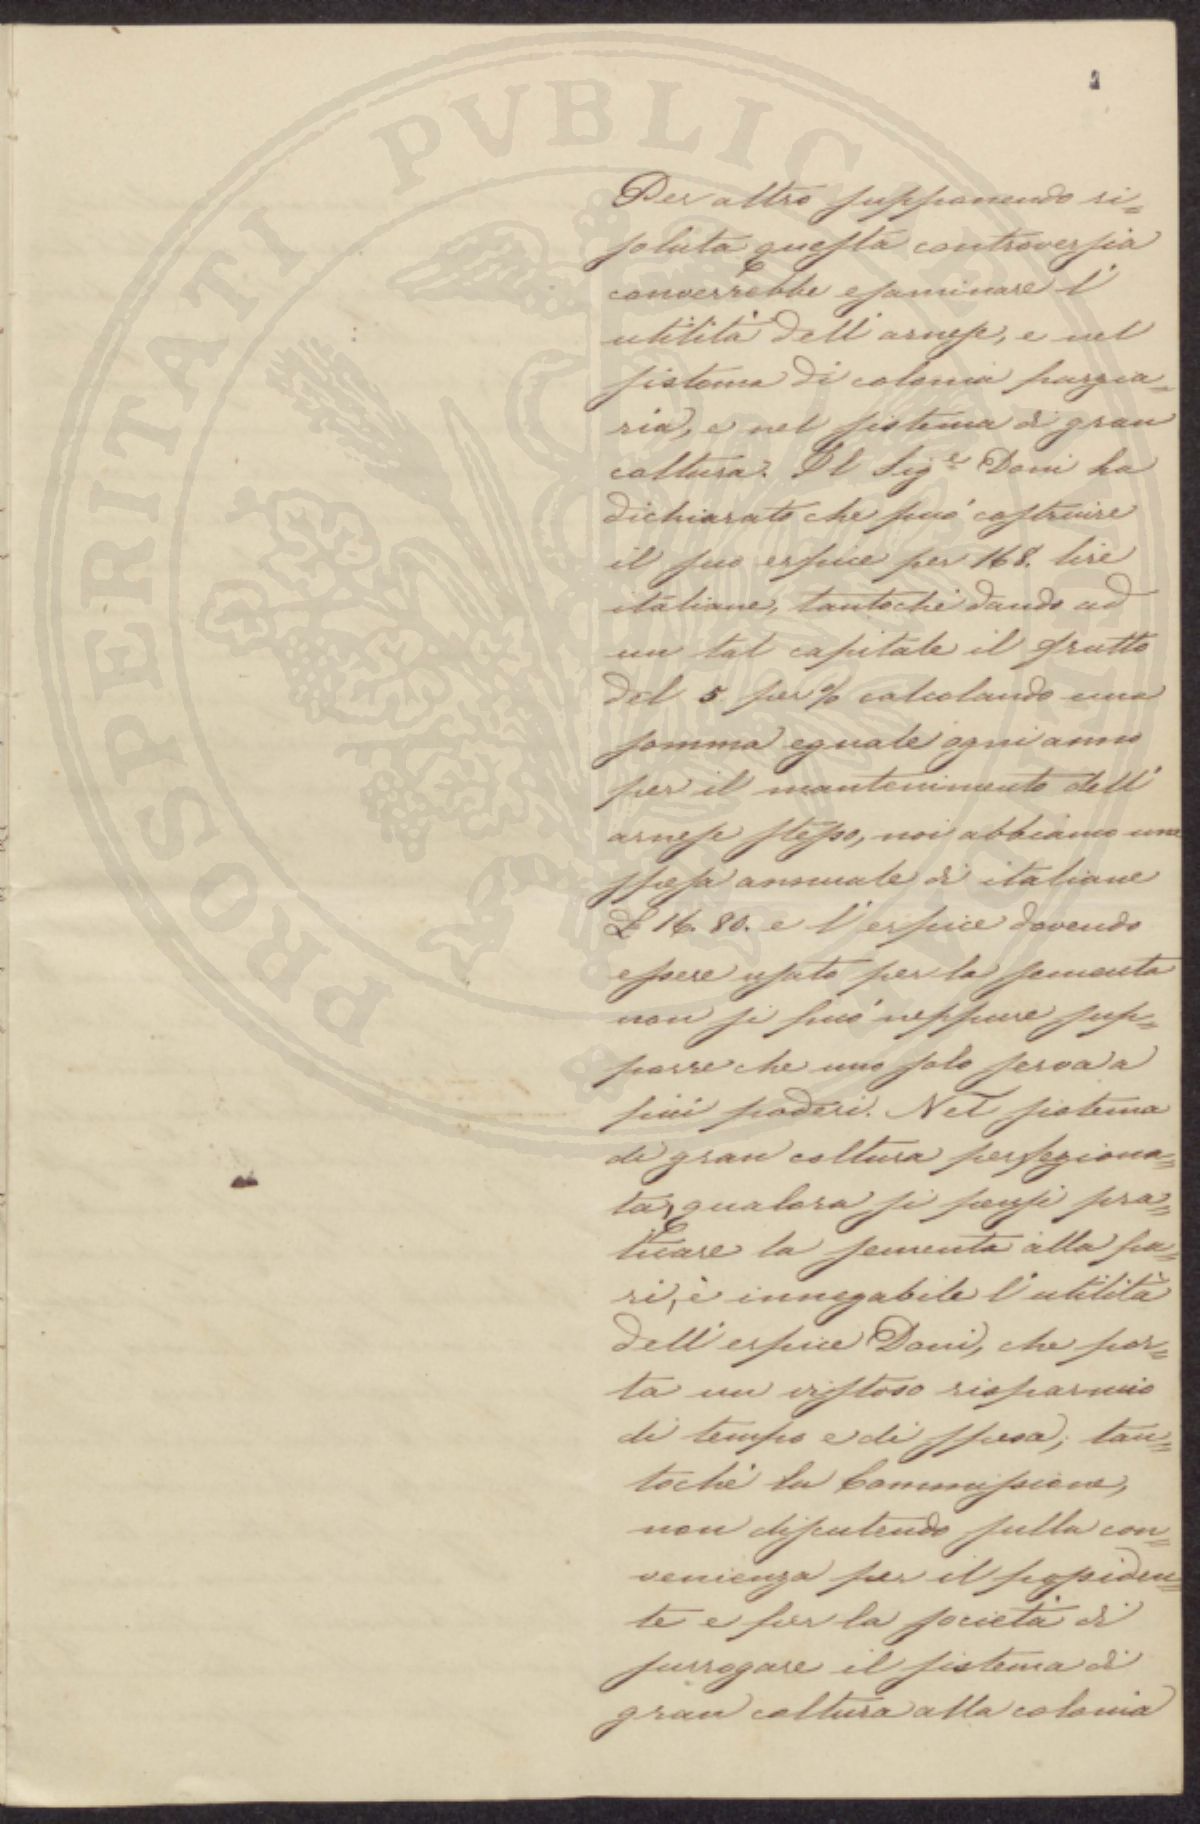 Per altro supponendo ri=
soluta questa controversia
converrebbe esaminare l'
utilità dell'arnese, e nel
sistema di colonia parzia=
ria, e nel sistema di gran
coltura. Il Sig.e Doni ha
dichiarato che può costruire
il suo erpice per 168. lire
italiane, tantochè dando ad
un tal capitale il frutto
del 5 per % calcolando una
somma eguale ogni anno
per il mantenimento dell'
arnese stesso, noi abbiamo una
spesa annuale di italiane
£ 16. 80. e l'erpice dovendo
essere usato per la sementa
non si può neppure sup=
porre che uno solo serva a
più poderi. Nel sistema
di gran coltura perfeziona=
ta, qualora si pensi pra=
ticare la sementa alla pa=
ri, è innegabile l'utilità
dell'erpice Doni, che por=
ta un vistoso risparmio
di tempo e di spesa; tan=
tochè la Commissione,
non disputendo sulla con=
venienza per il possiden=
te e per la società di
surrogare il sistema di
gran coltura alla colonia
PROSPERITATI PVBLICAE